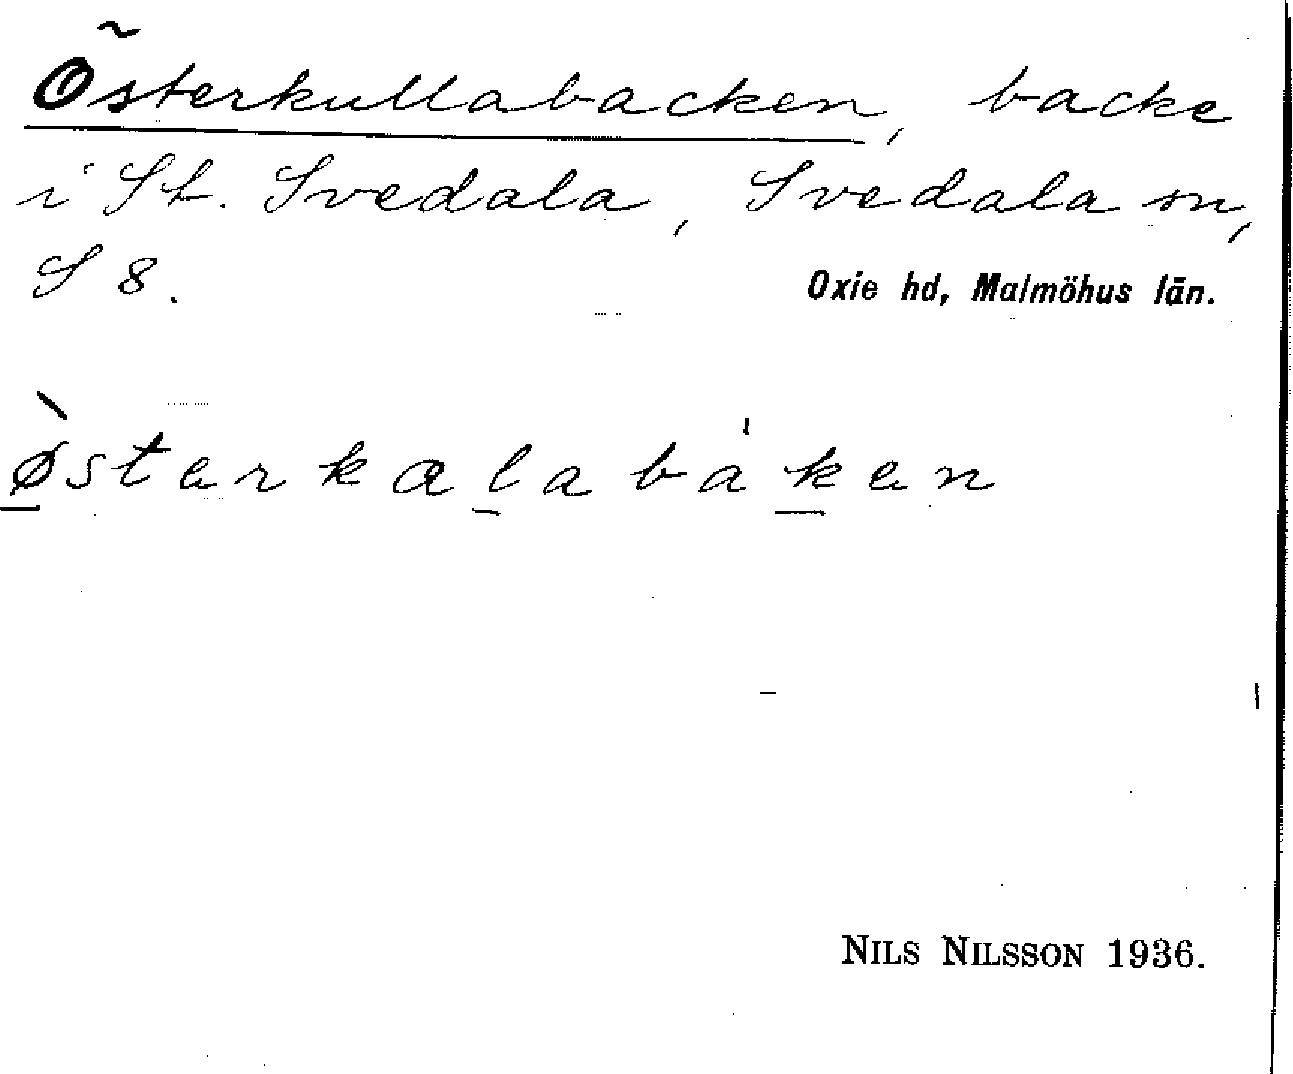 Österkullabacken, backe
i St. Svedala, Svedala sn,
S 8.
Oxie hd, Malmöhus län.
ø̀sterkalabåken
NILS NILSSON 1936.